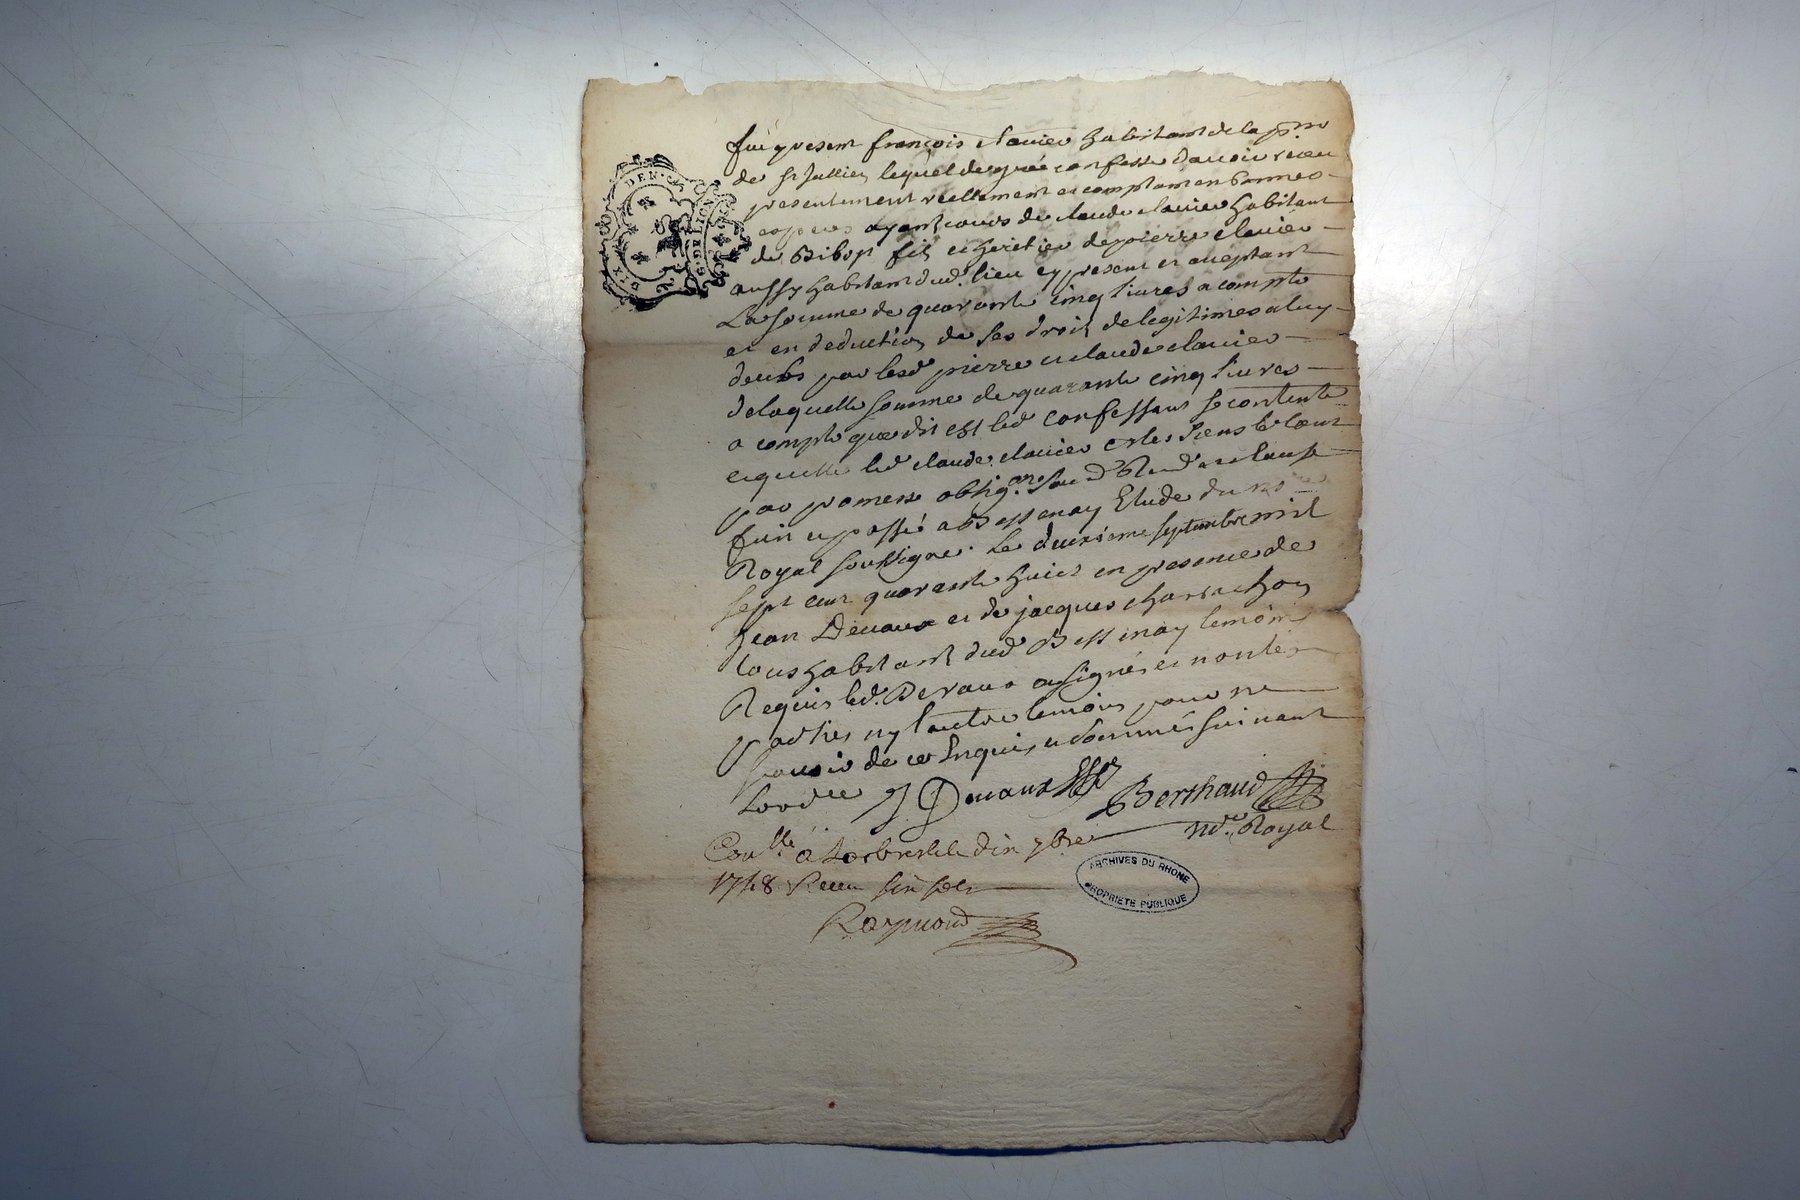 fut present françois clavier habitant de la p.sse
de st Jullien lequel de gré confesse davoir receu
presentement reellement et comptant en bonnes
especes ayant cours de claude clavier habitant
de Bibost fils et heritier de pierre clavier
aussy habitant dud. lieu cy present et acceptant
La somme de quarante cinq livres a compte
et en deduction de ses droit de legitimes a luy
deubs par lesd pierre et claude clavier
de laquelle somme de quarante cinq livres
a compte que dit est led confessant se contente
et quitte led claude clavier et les siens le tout
par promesse oblig.on clause
fait et passé a Bessenay Etude du no.re
Royal soussigné. Le deuxieme septembre mil
sept cent quarante huict en presence de
Jean Devaux et de jacques charrachon
tous habitant dud Bessenay temoins
Requis led. Devaux a signé et non les
parties ny lautre temoins pour ne
scavoir de ce Enquis et sommés suivant
Lord.ce J Devaux Berthaud
no.re Royal
Con.llé à Larbresle le dix 7bre
1748 Receu six sols
Raymond
DEN.
DIX
G.D.LION
ARCHIVES DU RHONE
PROPRIETE PUBLIQUE